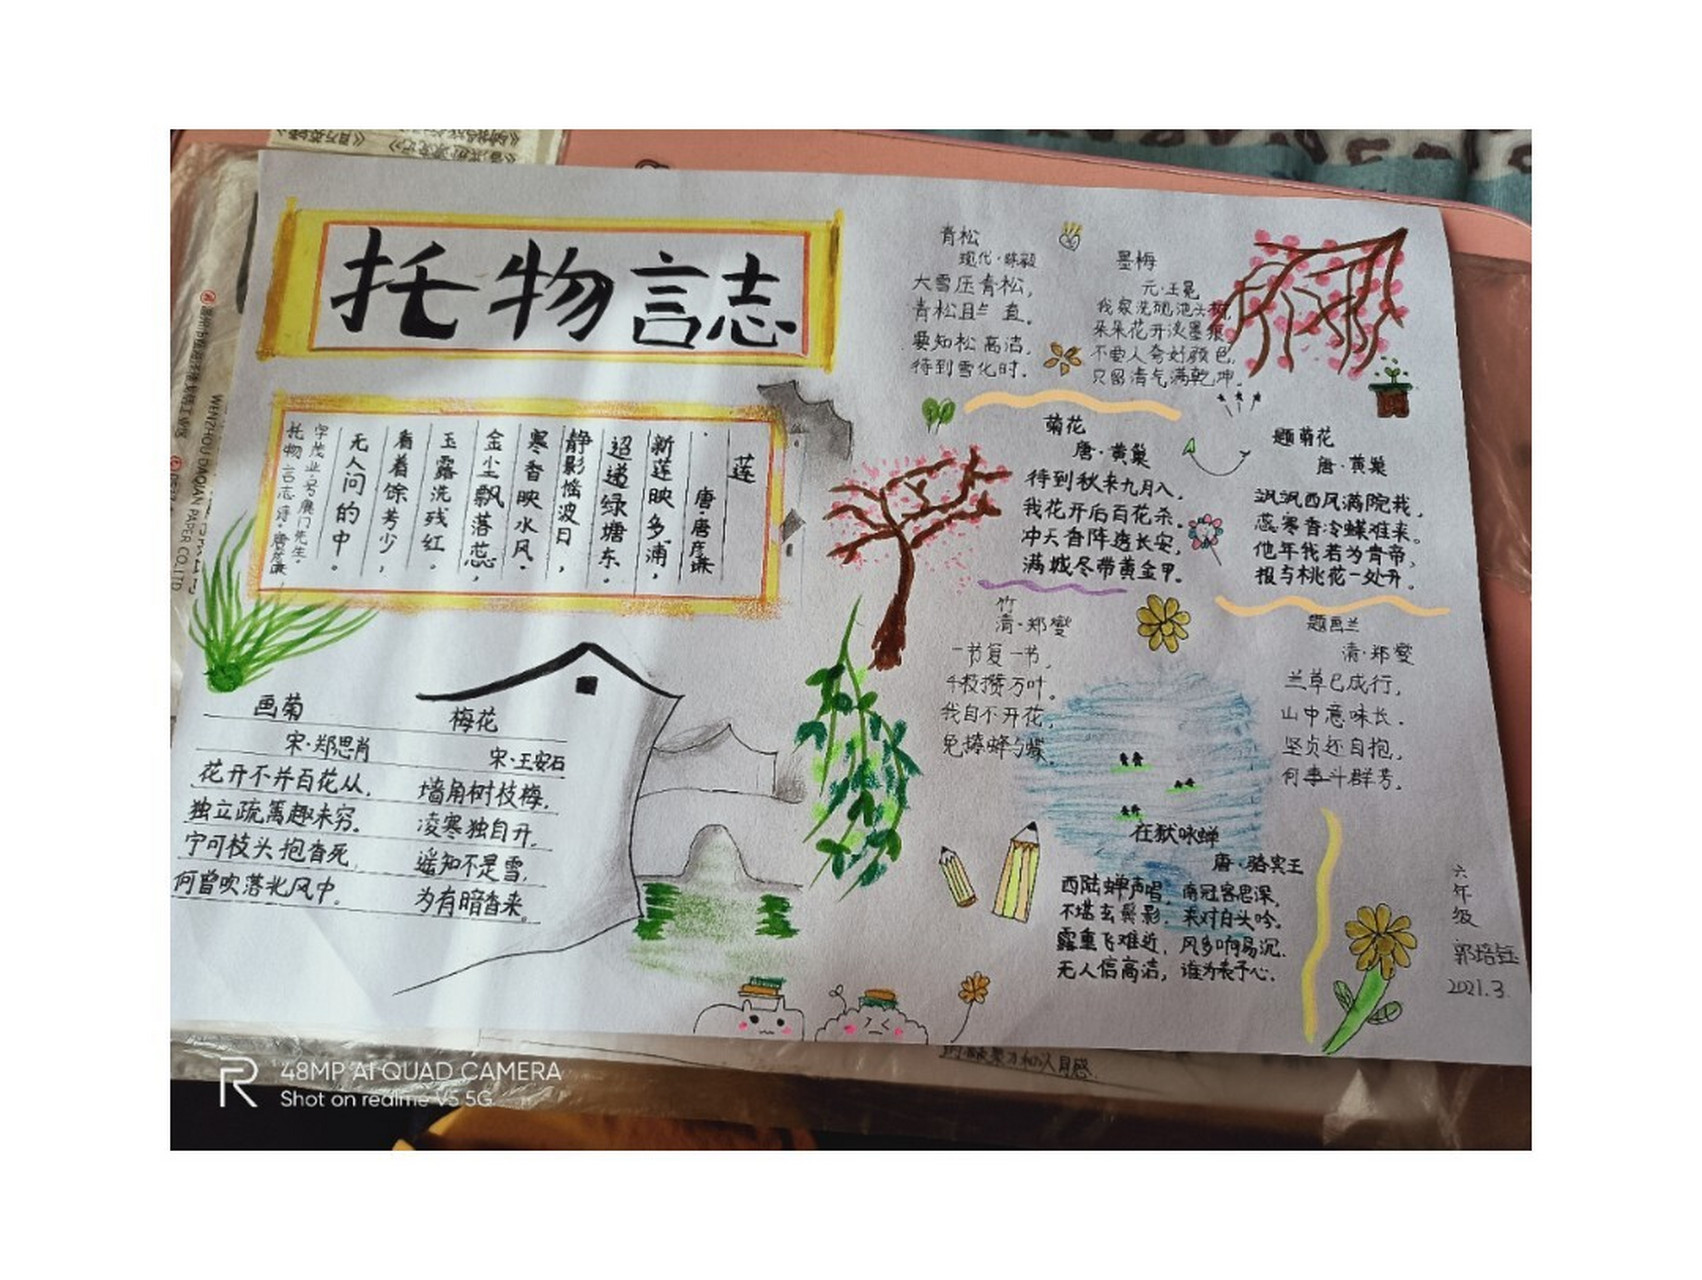 托物言志
莲
·唐·唐彦谦
新莲映多浦，
迢递绿塘东。
静影摇波日，
寒香映水风.
金尘飘落蕊，
玉露洗残红.
看着馀芳少，
无人问的中。
字茂业,号鹿门先生.
托物言志诗·唐彦谦
画菊
宋·郑思肖
花开不并百花丛，
独立疏篱趣未穷。
宁可枝头抱香死，
何曾吹落北风中。
梅花
宋·王安石
墙角树枝梅，
凌寒独自开，
遥知不是雪，
为有暗香来。
青松
现代·陈毅
大雪压青松，
青松且兰直。
要知松高洁，
待到雪化时.
墨梅
元·王冕
我家洗砚池头树，
朵朵花开淡墨痕
不要人夸好颜色，
只留清气满乾坤。
菊花
唐·黄巢
待到秋来九月八，
我花开后百花杀。
冲天香阵透长安，
满城尽带黄金甲。
题菊花
唐·黄巢
飒飒西风满院栽，
蕊寒香冷蝶难来。
他年我若为青帝，
报与桃花一处开。
竹
清·郑燮
一节复一节，
千枝攒万叶。
我自不开花，
免撩蜂与蝶.
题画兰
清·郑燮
兰草已成行，
山中意味长.
坚贞还自抱，
何事斗群芳。
在狱咏蝉
唐·骆宾王
西陆蝉声唱，南冠客思深，
不堪玄鬓影，来对白头吟。
露重飞难近，风多响易沉.
无人信高洁，谁为表予心.
六年级
郭培钰
2021.3
WENZHOU DAQUAN PAPER CO.,LTD
48MP AI QUAD CAMERA
Shot on realme V5 5G